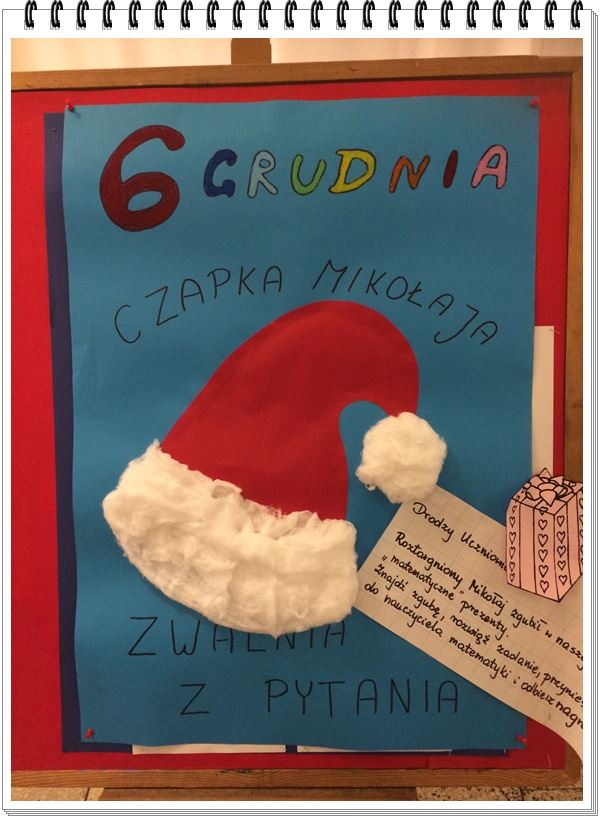 6 GRUDNIA
CZAPKA MIKOŁAJA
ZWALNIA
Z PYTANIA
Drodzy
Roztargniony Mikołaj zgubił w
„matematyczne" prezenty.
Znajdź zgubę, rozwiąż zadanie,
do nauczyciela matematyki i odbierz